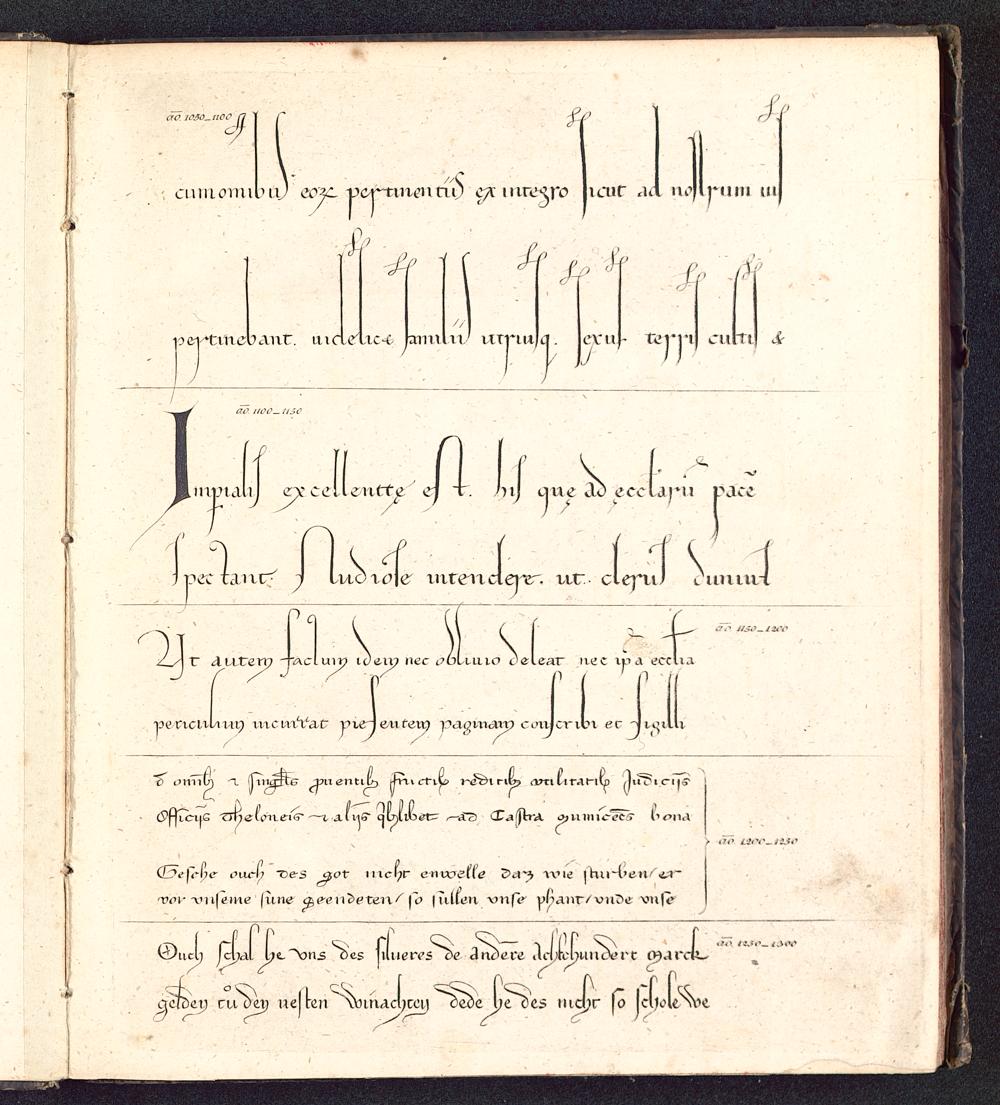 a͞o. 1050_1100
cum omnibus eoꝝ pertinentiis ex integro sicut ad nostrum ius
pertinebant. uidelicet familiis utriusq. sexus terris cultis &
a͞o. 1100_1150
Imꝑialis excellentię est. his quę ad ęccl̅arū pacē
spectant. Audiose intendere. ut clerus
a͞o. 1150_1200
Ut autem factum idem nec obliuio deleat nec ip̅a eccl̅ia
periculum incurrat presentem paginam conscribi et sigilli
Officiis Theloneis ⁊ aliis ad Castra bona
a͞o. 1200_1250
Gesche ouch des got nicht enwelle daz wie sturben/er
vor vnseme sune geendeten/ so sullen vnse phant/vnde vnse
Ouch schal he vns des silueres de andere achtehundert marck
a͞o. 1250_1300
gelden tů den nesten Winachten dede he des nicht so schole we